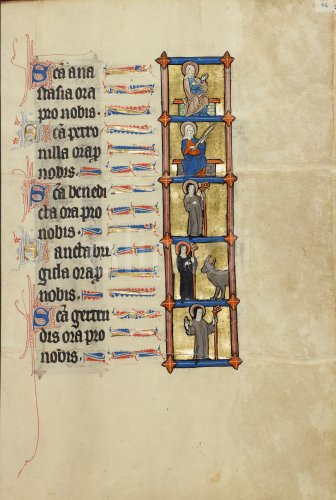 Sca ana
stasia ora
pro nobis.
Sca petro
nilla orap
nobis.
Sca benedi
cta ora pro
nobis.
Sancta bri
gida orap
nobis.
Sca gertru
dis ora pro
nobis.